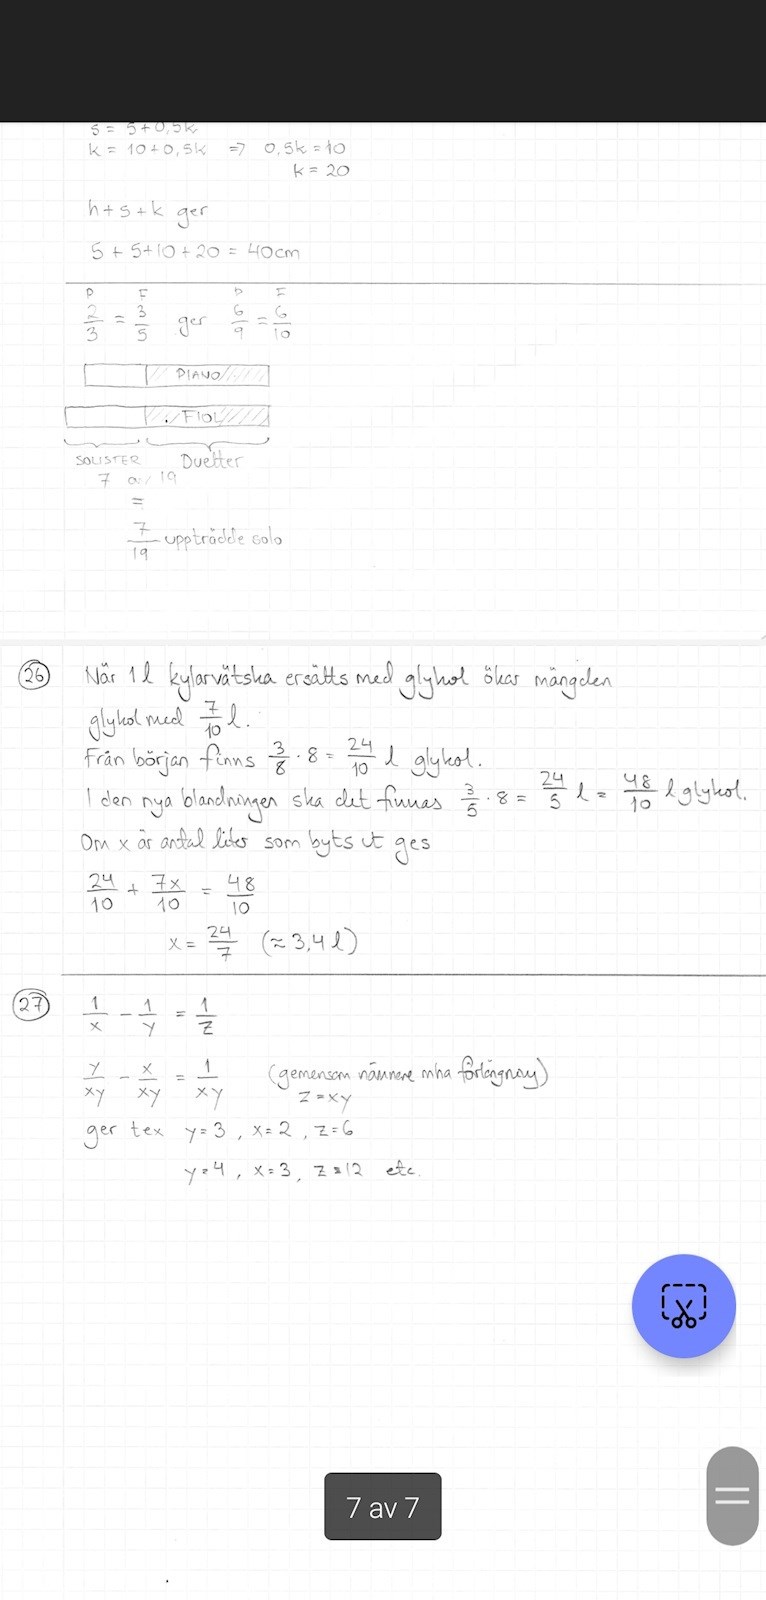 s = 5+0,5k
k = 10+0,5k ⇒ 0,5k=10
k = 20
h+s+k ger
5 + 5+10+20 = 40cm
P F P F
2/3 = 3/5 ger 6/9 = 6/10
PIANO
FIOL
SOLISTER Duetter
7 av 19
=
7/19 uppträdde solo
26 När 1l kylarvätska ersätts med glykol ökar mängden
glykol med 7/10 l.
Från början finns 3/8 · 8 = 24/10 l glykol.
I den nya blandningen ska det finnas 3/5 · 8 = 24/5 l = 48/10 l glykol.
Om x är antal liter som byts ut ges
24/10 + 7x/10 = 48/10
x = 24/7 (≈3,4 l)
27 1/x - 1/y = 1/z
y/xy - x/xy = 1/xy (gemensam nämnare mha förlängning)
z = xy
ger tex y=3, x=2, z=6
y=4, x=3, z=12 etc.
7 av 7